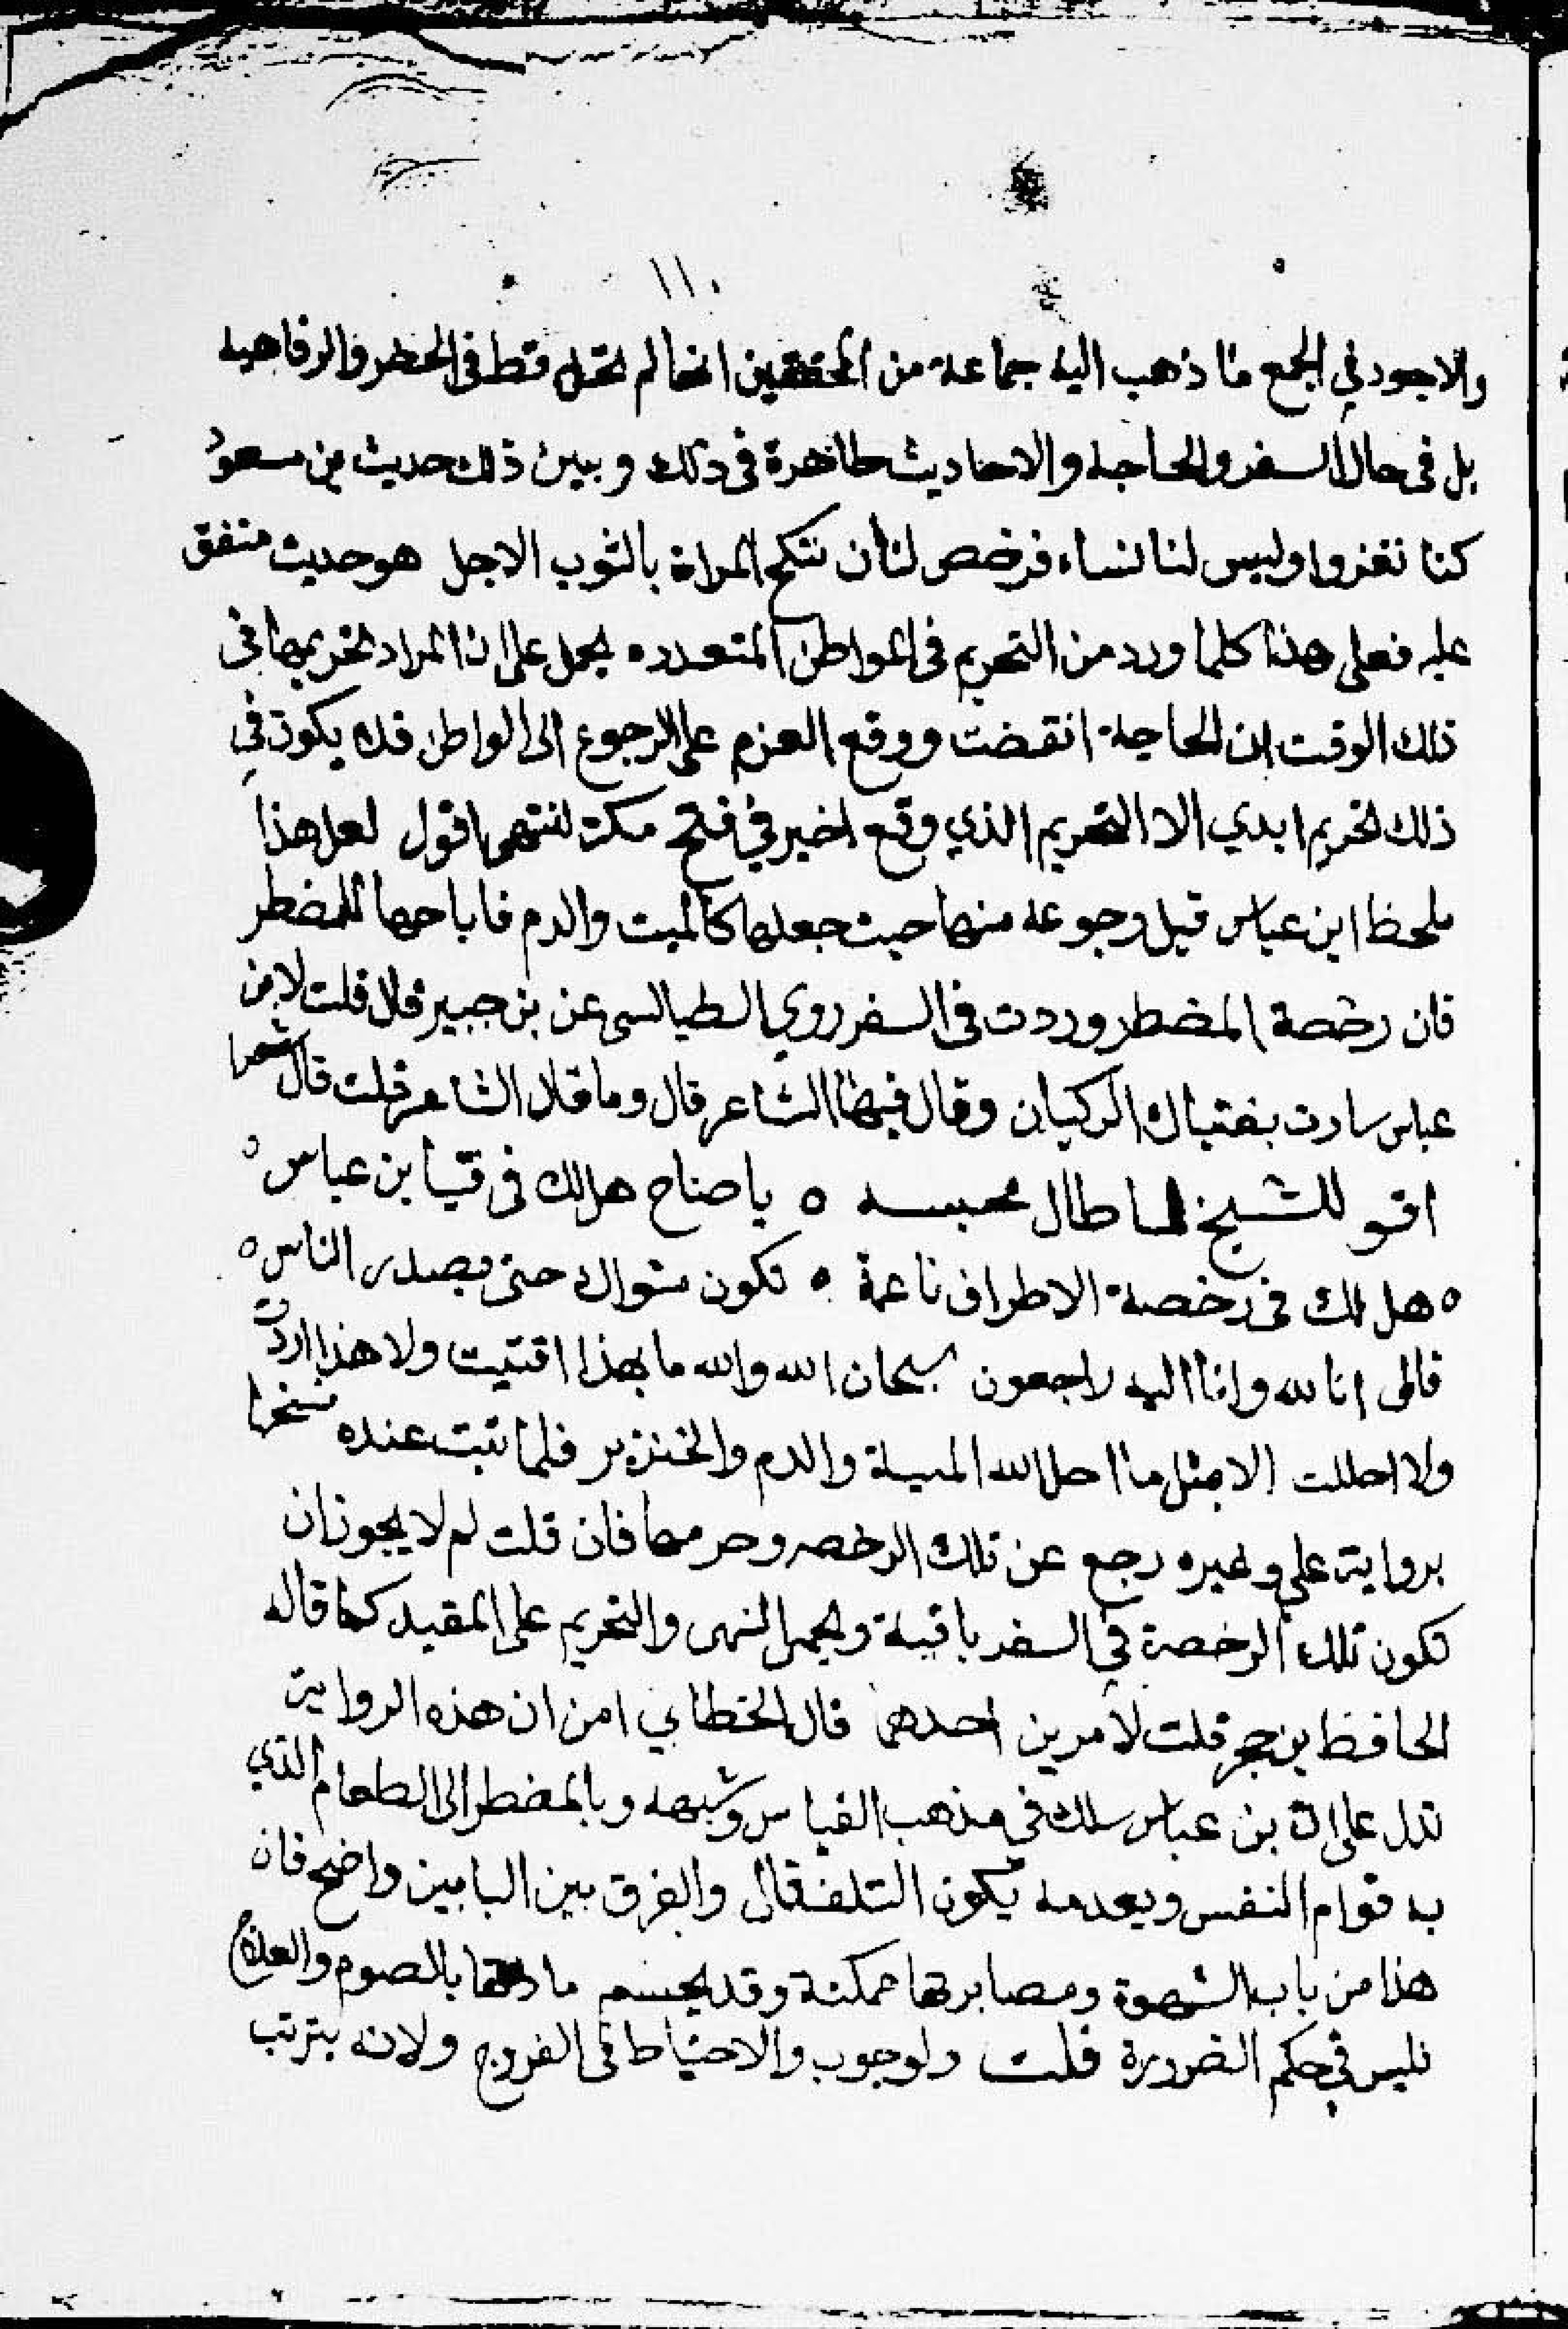 ١١٠
والاجود في الجمع ما ذهب اليه جماعة من المحققين انها لم تحل قط في الحضر والرفاهيه
بل في حال السفر والحاجه والاحاديث ظاهرة في ذلك وبين ذلك حديث بن مسعود
كنا نغزوا وليس لنا نساء فرخص لنا ان ننكح المراة بالثوب الاجل هو حديث متفق
عليه فعلى هذا كلما ورد من التحريم في المواطن المتعدده يحمل على ان المراد تحريمها في
ذلك الوقت ان الحاجة انقضت ووقع العزم على الرجوع الى الواطن فلا يكون في
ذلك تحريم ابدي الا التحريم الذي وقع اخير في فتح مكة انتهى اقول لعل هذا
ملحظ ابن عباس قبل رجوعه منها حيث جعلها كالميت والدم فاباحها للمضطر
فان رخصة المضطر وردت في السفر روي الطيالسي عن بن جبير قال قلت لابن
عباس سارت بفتياك الركبان وقال فيها الشاعر قال وما قال الشاعر قلت قال شعرا
اقو للشيخ لما طال محبسه ه يا صاح هل لك في فتيا بن عباس ه
ه هل لك في رخصة الاطراف ناعمة ه تكون مثواك حتى يصدر الناس ه
قال انا لله وانا اليه راجعون سبحان الله والله ما بهذا افتيت ولا هذا اردت
ولا احللت الا مثل ما احل الله الميتة والدم والخنزير فلما ثبت عنده نسخها
برواية علي وغيره رجع عن تلك الرخصه وحرمها فان قلت لم لا يجوز ان
تكون تلك الرخصة في السفر باقية ويحمل النهي والتحريم على المقيد كما قاله
الحافظ بن حجر قلت لامرين احدهما قال الخطابي امن ان هذه الرواية
تدل على ان بن عباس سلك في مذهب القياس وشبهه وبالمضطر الى الطعام الذي
به قوام النفس وبعدمه يكون التلف قال والفرق بين البابين واضح فان
هذا من باب الشهوة ومصابرتها ممكنة وقد يحسم مادتها بالصوم والعلاج
فليس في حكم الضرورة قلت ولوجوب والاحتياط في الفروج ولانه يترتب